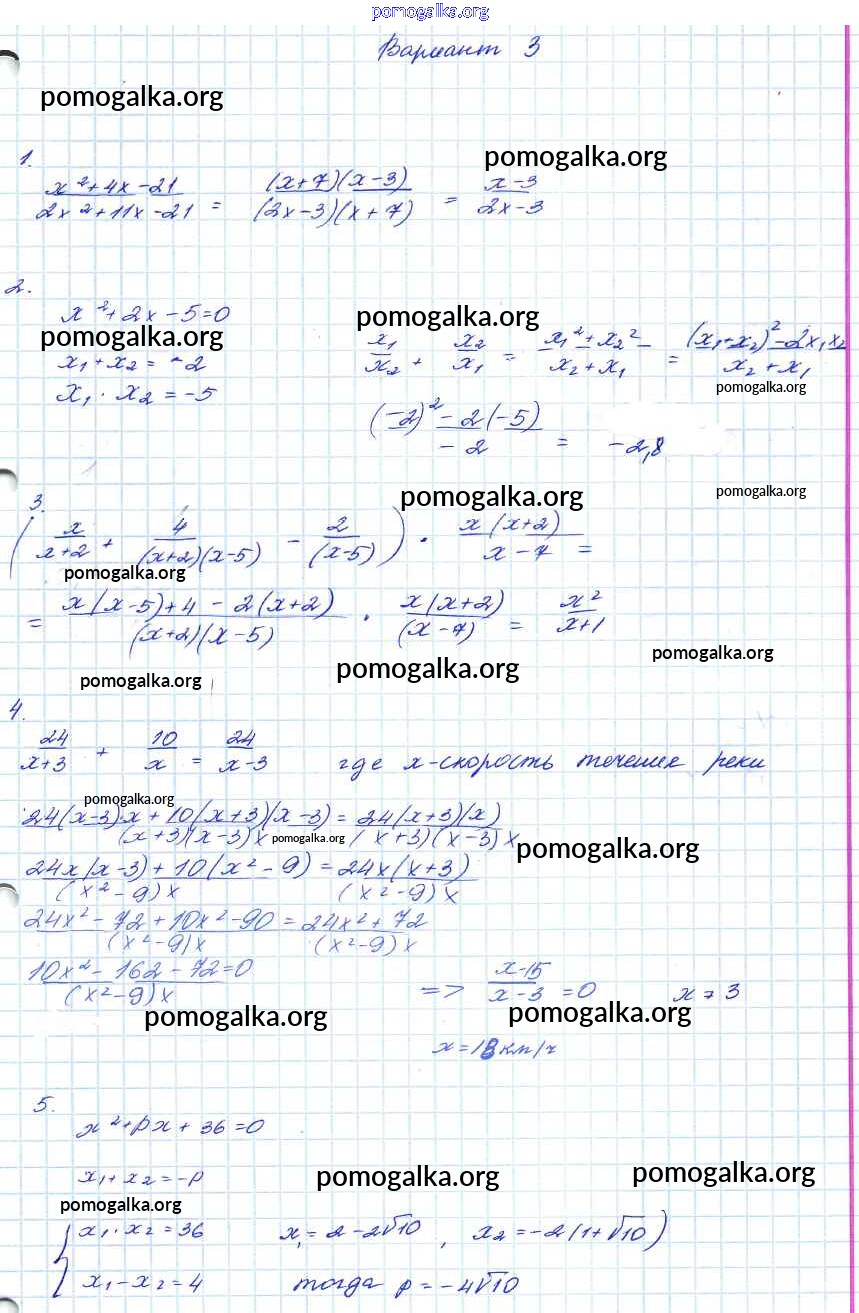 pomogalka.org
Вариант 3
pomogalka.org
1.
pomogalka.org
(x²+4x-21)/(2x²+11x-21) = ((x+7)(x-3))/((2x-3)(x+7)) = (x-3)/(2x-3)
2.
x²+2x-5=0
pomogalka.org
pomogalka.org
x₁+x₂=-2
x₁/x₂ + x₂/x₁ = (x₁²+x₂²)/(x₂+x₁) = ((x₁+x₂)²-2x₁x₂)/(x₂+x₁)
pomogalka.org
x₁·x₂=-5
((-2)²-2(-5))/(-2) = -2,8
pomogalka.org
pomogalka.org
3.
(x/(x+2) + 4/((x+2)(x-5)) - 2/(x-5)) · (x(x+2))/(x-7) =
pomogalka.org
= (x(x-5)+4-2(x+2))/((x+2)(x-5)) · (x(x+2))/(x-7) = x²/(x+1)
pomogalka.org
pomogalka.org
pomogalka.org
4.
24/(x+3) + 10/x = 24/(x-3) где x-скорость течения реки
pomogalka.org
(24(x-3)·x+10(x+3)(x-3))/((x+3)(x-3)x) = (24(x+3)(x))/((x+3)(x-3)x)
pomogalka.org
pomogalka.org
(24x(x-3)+10(x²-9))/((x²-9)x) = (24x(x+3))/((x²-9)x)
(24x²-72+10x²-90)/((x²-9)x) = (24x²+72)/((x²-9)x)
(10x²-162-72=0)/((x²-9)x) => (x-15)/(x-3) =0
pomogalka.org
pomogalka.org
5.
x²+px+36=0
x₁+x₂=-p
pomogalka.org
pomogalka.org
pomogalka.org
x₁·x₂=36 x₁=2-2√10, x₂=-2(1+√10)
x₁-x₂=4 тогда p=-4√10